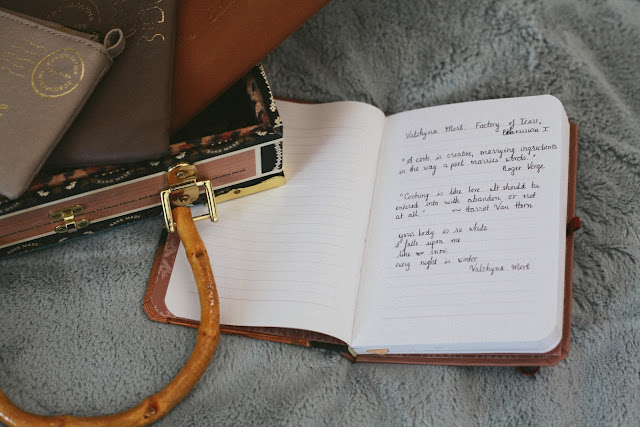 Valzhyna Mort. Factory of Tears,
Belarusian I
"A cook is creative, marrying ingredients
in the way a poet marries words."
Roger Verge
"Cooking is like love. It should be
entered into with abandon or not
at all." ~ Harriet Van Horn
your body is so white
it falls upon me
like snow
every night is winter
Valzhyna Mort